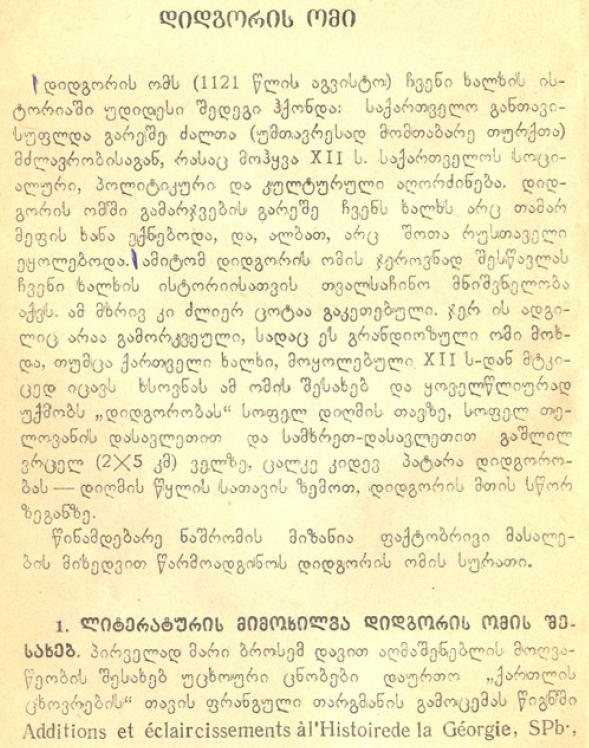 დიდგორის ომი
დიდგორის ომს (1121 წლის აგვისტო) ჩვენი ხალხის ის-
ტორიაში უდიდესი შედეგი ჰქონდა: საქართველო განთავი-
სუფლდა გარეშე ძალთა (უმთავრესად მომთაბარე თურქთა)
მძლავრობისაგან, რასაც მოჰყვა XII ს. საქართველოს სოცი-
ალური, პოლიტიკური და კულტურული აღორძინება. დიდ-
გორის ომში გამარჯვების გარეშე ჩვენს ხალხს არც თამარ
მეფის ხანა ექნებოდა, და, ალბათ, არც შოთა რუსთაველი
ეყოლებოდა. ამიტომ დიდგორის ომის ჯეროვნად შესწავლას
ჩვენი ხალხის ისტორიისათვის თვალსაჩინო მნიშვნელობა
აქვს. ამ მხრივ კი ძლიერ ცოტაა გაკეთებული. ჯერ ის ადგი-
ლიც არაა გამორკვეული, სადაც ეს გრანდიოზული ომი მოხ-
და, თუმცა ქართველი ხალხი, მოყოლებული XII ს-დან მტკი-
ცედ იცავს ხსოვნას ამ ომის შესახებ და ყოველწლიურად
უქმობს „დიდგორობას“ სოფელ დიღმის თავზე, სოფელ თე-
ლოვანის დასავლეთით და სამხრეთ-დასავლეთით გაშლილ
ვრცელ (2×5 კმ) ველზე, ცალკე კიდევ პატარა დიდგორო-
ბას — დიღმის წყლის სათავის ზემოთ, დიდგორის მთის სწორ
ზეგანზე.
წინამდებარე ნაშრომის მიზანია ფაქტობრივი მასალე-
ბის მიხედვით წარმოადგინოს დიდგორის ომის სურათი.
1. ლიტერატურის მიმოხილვა დიდგორის ომის შე-
სახებ. პირველად მარი ბროსემ დავით აღმაშენებლის მოღვა-
წეობის შესახებ უცხოური ცნობები დაურთო „ქართლის
ცხოვრების“ თავის ფრანგული თარგმანის გამოცემას წიგნში
Additions et éclaircissements àl'Histoirede la Géorgie, SPb·,